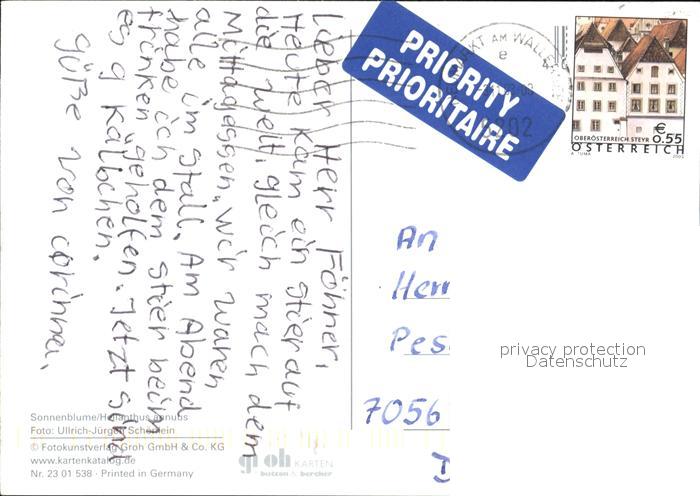 Lieber Herr Föhner,
Heute kam ein stier auf
die welt, gleich nach dem
Mittagessen. wir waren
alle im stall. Am Abend
habe ich dem stier beim
trinken geholfen. Jetzt sind
es 9 Kälbchen.
güße von corinna.
PRIORITY
PRIORITAIRE
KT AM WALLE
OBERÖSTERREICH STEYR
€ 0.55
ÖSTERREICH
An
Her
Pes
7056
D
privacy protection
Datenschutz
Sonnenblume/Helianthus annuus
Foto: Ullrich-Jürgen Schönlein
© Fotokunstverlag Groh GmbH & Co. KG
www.kartenkatalog.de
Nr. 23 01 538 · Printed in Germany
groh KARTEN